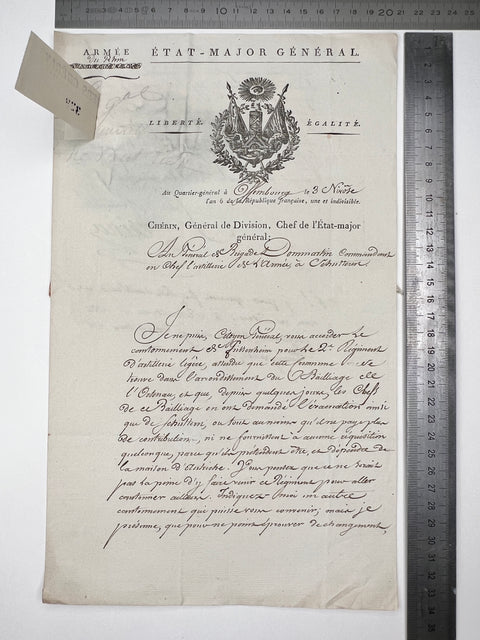 ARMÉE ÉTAT-MAJOR GÉNÉRAL.
du Rhin
LIBERTÉ. ÉGALITÉ.
Au Quartier-général à Offembourg le 3 Nivôse
l'an 6 de la République française, une et indivisible.
CHÉRIN, Général de Division, Chef de l'État-major
général;
Au Général de Brigade Dommartin Commandant
en Chef l'artillerie de l'Armée, à Schuttern.
Je ne puis, Citoyen Général, vous accorder le
cantonnement de pour le 2e Régiment
d'artillerie légère, attendu que cette Commune se
trouve dans l'arrondissement du Bailliage de
l'Ortenau, et que depuis quelques jours, les Chefs
de ce Bailliage en ont demandé l'évacuation ainsi
que de Schuttern, ou tout au moins qu'on ne paye plus
de contribution, ni ne fournissent a aucune réquisition
quelconque, parce qu'ils prétendent être, et dépendre de
la maison d'Autriche. Vous pensez que ce ne serait
pas la peine d'y faire venir ce Régiment pour aller
cantonner ailleurs. Indiquez moi un autre
cantonnement qui puisse vous convenir; mais je
présume, que pour ne point éprouver de changement,